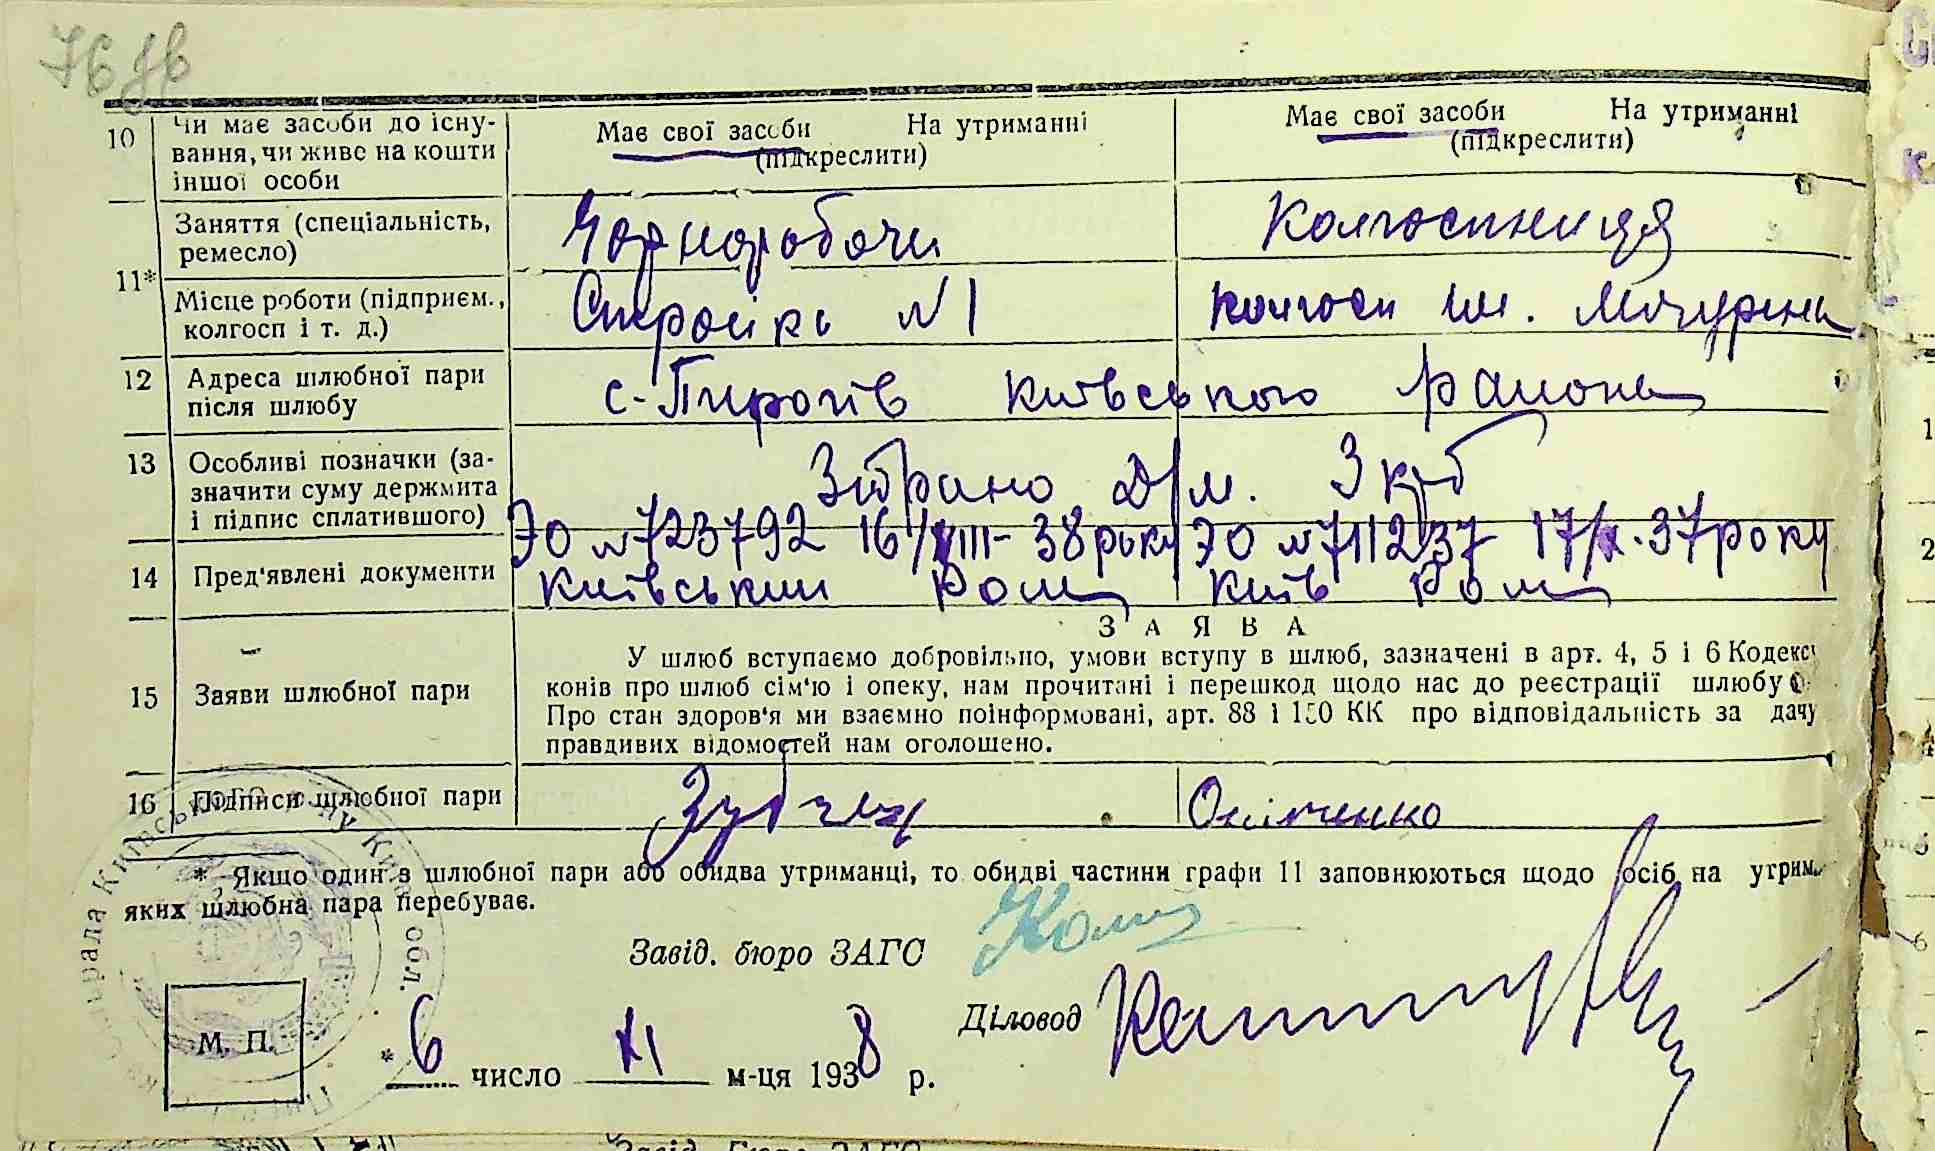 76 зв
10 Чи має засоби до існу-
вання, чи живе на кошти
іншої особи
Має свої засоби На утриманні
(підкреслити)
Має свої засоби На утриманні
(підкреслити)
11* Заняття (спеціальність,
ремесло)
Чорноробочи
Колгоспниця
Місце роботи (підприєм.,
колгосп і т. д.)
Стройка №1
Колгосп Ім. Мічуріна
12 Адреса шлюбної пари
після шлюбу
с-Пирогів Київського района
13 Особливі позначки (за-
значити суму держмита
і підпис сплатившого)
Зібрано Д/м. 3 крб
14 Пред'явлені документи
ЭО №723792 16/VIII-38 року
Київський
ЭО №711237 17/X-37 року
Київ
15 Заяви шлюбної пари
ЗАЯВА
У шлюб вступаємо добровільно, умови вступу в шлюб, зазначені в арт. 4, 5 і 6 Кодекс
конів про шлюб сім'ю і опеку, нам прочитані і перешкод щодо нас до реєстрації шлюбу
Про стан здоров'я ми взаємно поінформовані, арт. 88 і 150 КК про відповідальність за дачу
правдивих відомостей нам оголошено.
16 Підписи шлюбної пари
Оніщенко
* Якщо один з шлюбної пари або обидва утриманці, то обидві частини графи 11 заповнюються щодо осіб на утрим
яких шлюбна пара перебуває.
Завід. бюро ЗАГС
Діловод
М. П.
* 6 число XI м-ця 1938 р.